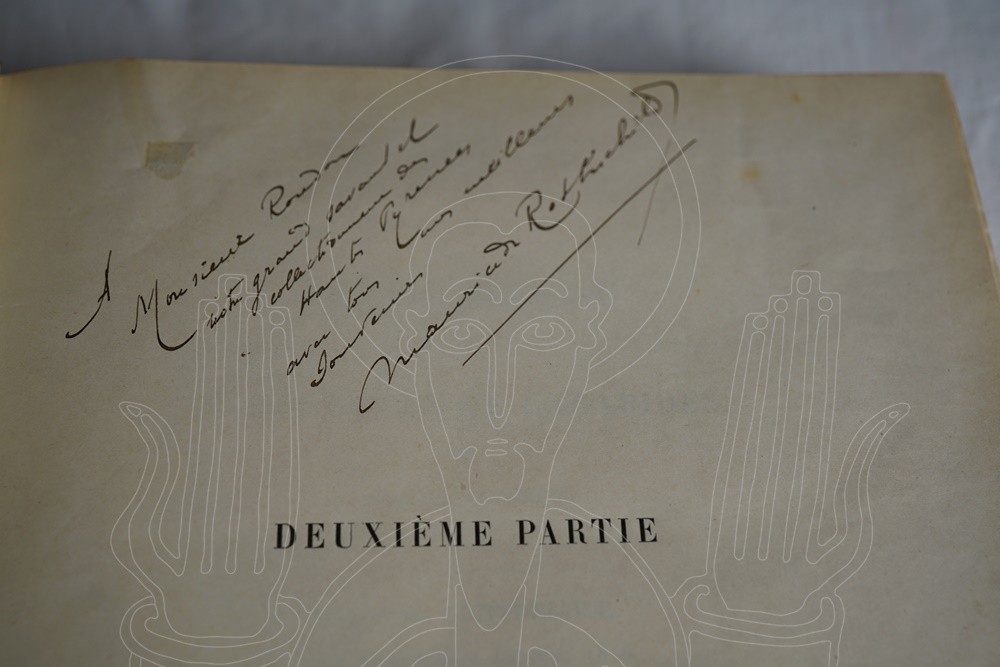 A
Monsieur Rondou
notre grand savant et
collectionneur des
Hautes Pyrenees
avec tous mes meilleurs
Souvenirs
Maurice de Rothschild
DEUXIÈME PARTIE